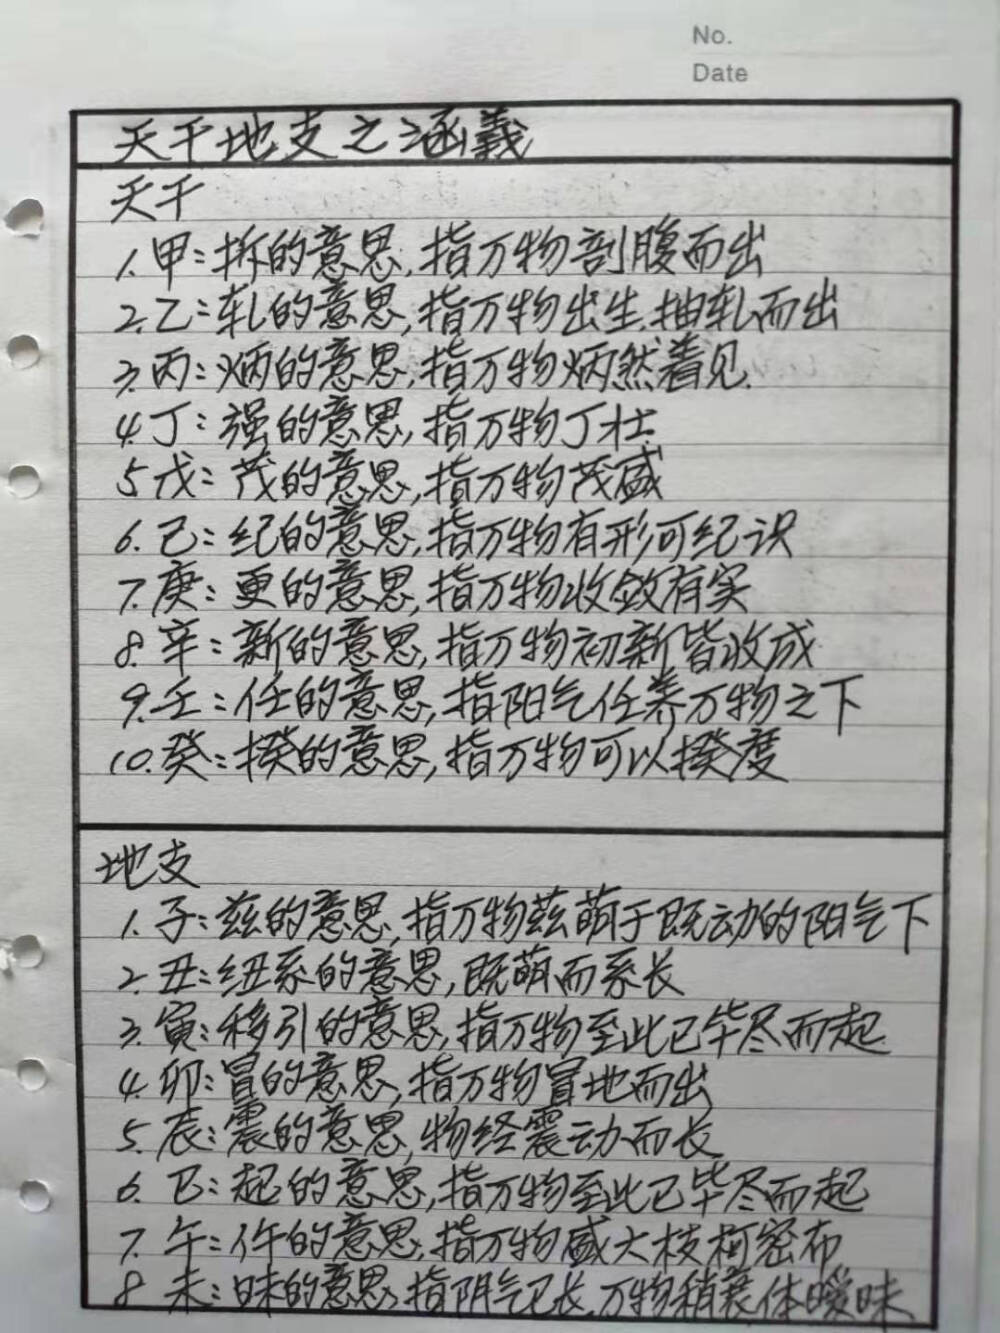 No.
Date
天干地支之涵義
天干
1.甲:拆的意思,指万物剖腹而出
2.乙:轧的意思,指万物出生,抽轧而出
3.丙:炳的意思,指万物炳然着见.
4.丁:强的意思,指万物丁壮
5.戊:茂的意思,指万物茂盛
6.己:纪的意思,指万物有形可纪识
7.庚:更的意思,指万物收敛有实
8.辛:新的意思,指万物初新皆收成
9.壬:任的意思,指阳气任养万物之下
10.癸:揆的意思,指万物可以揆度
地支
1.子:兹的意思,指万物兹萌于既动的阳气下
2.丑:纽系的意思,既萌而系长
3.寅:移引的意思,指万物至此已毕尽而起
4.卯:冒的意思,指万物冒地而出
5.辰:震的意思,物经震动而长
6.巳:起的意思,指万物至此已毕尽而起
7.午:仵的意思,指万物盛大枝柯密布
8.未:昧的意思,指阴气已长,万物稍衰体暧昧